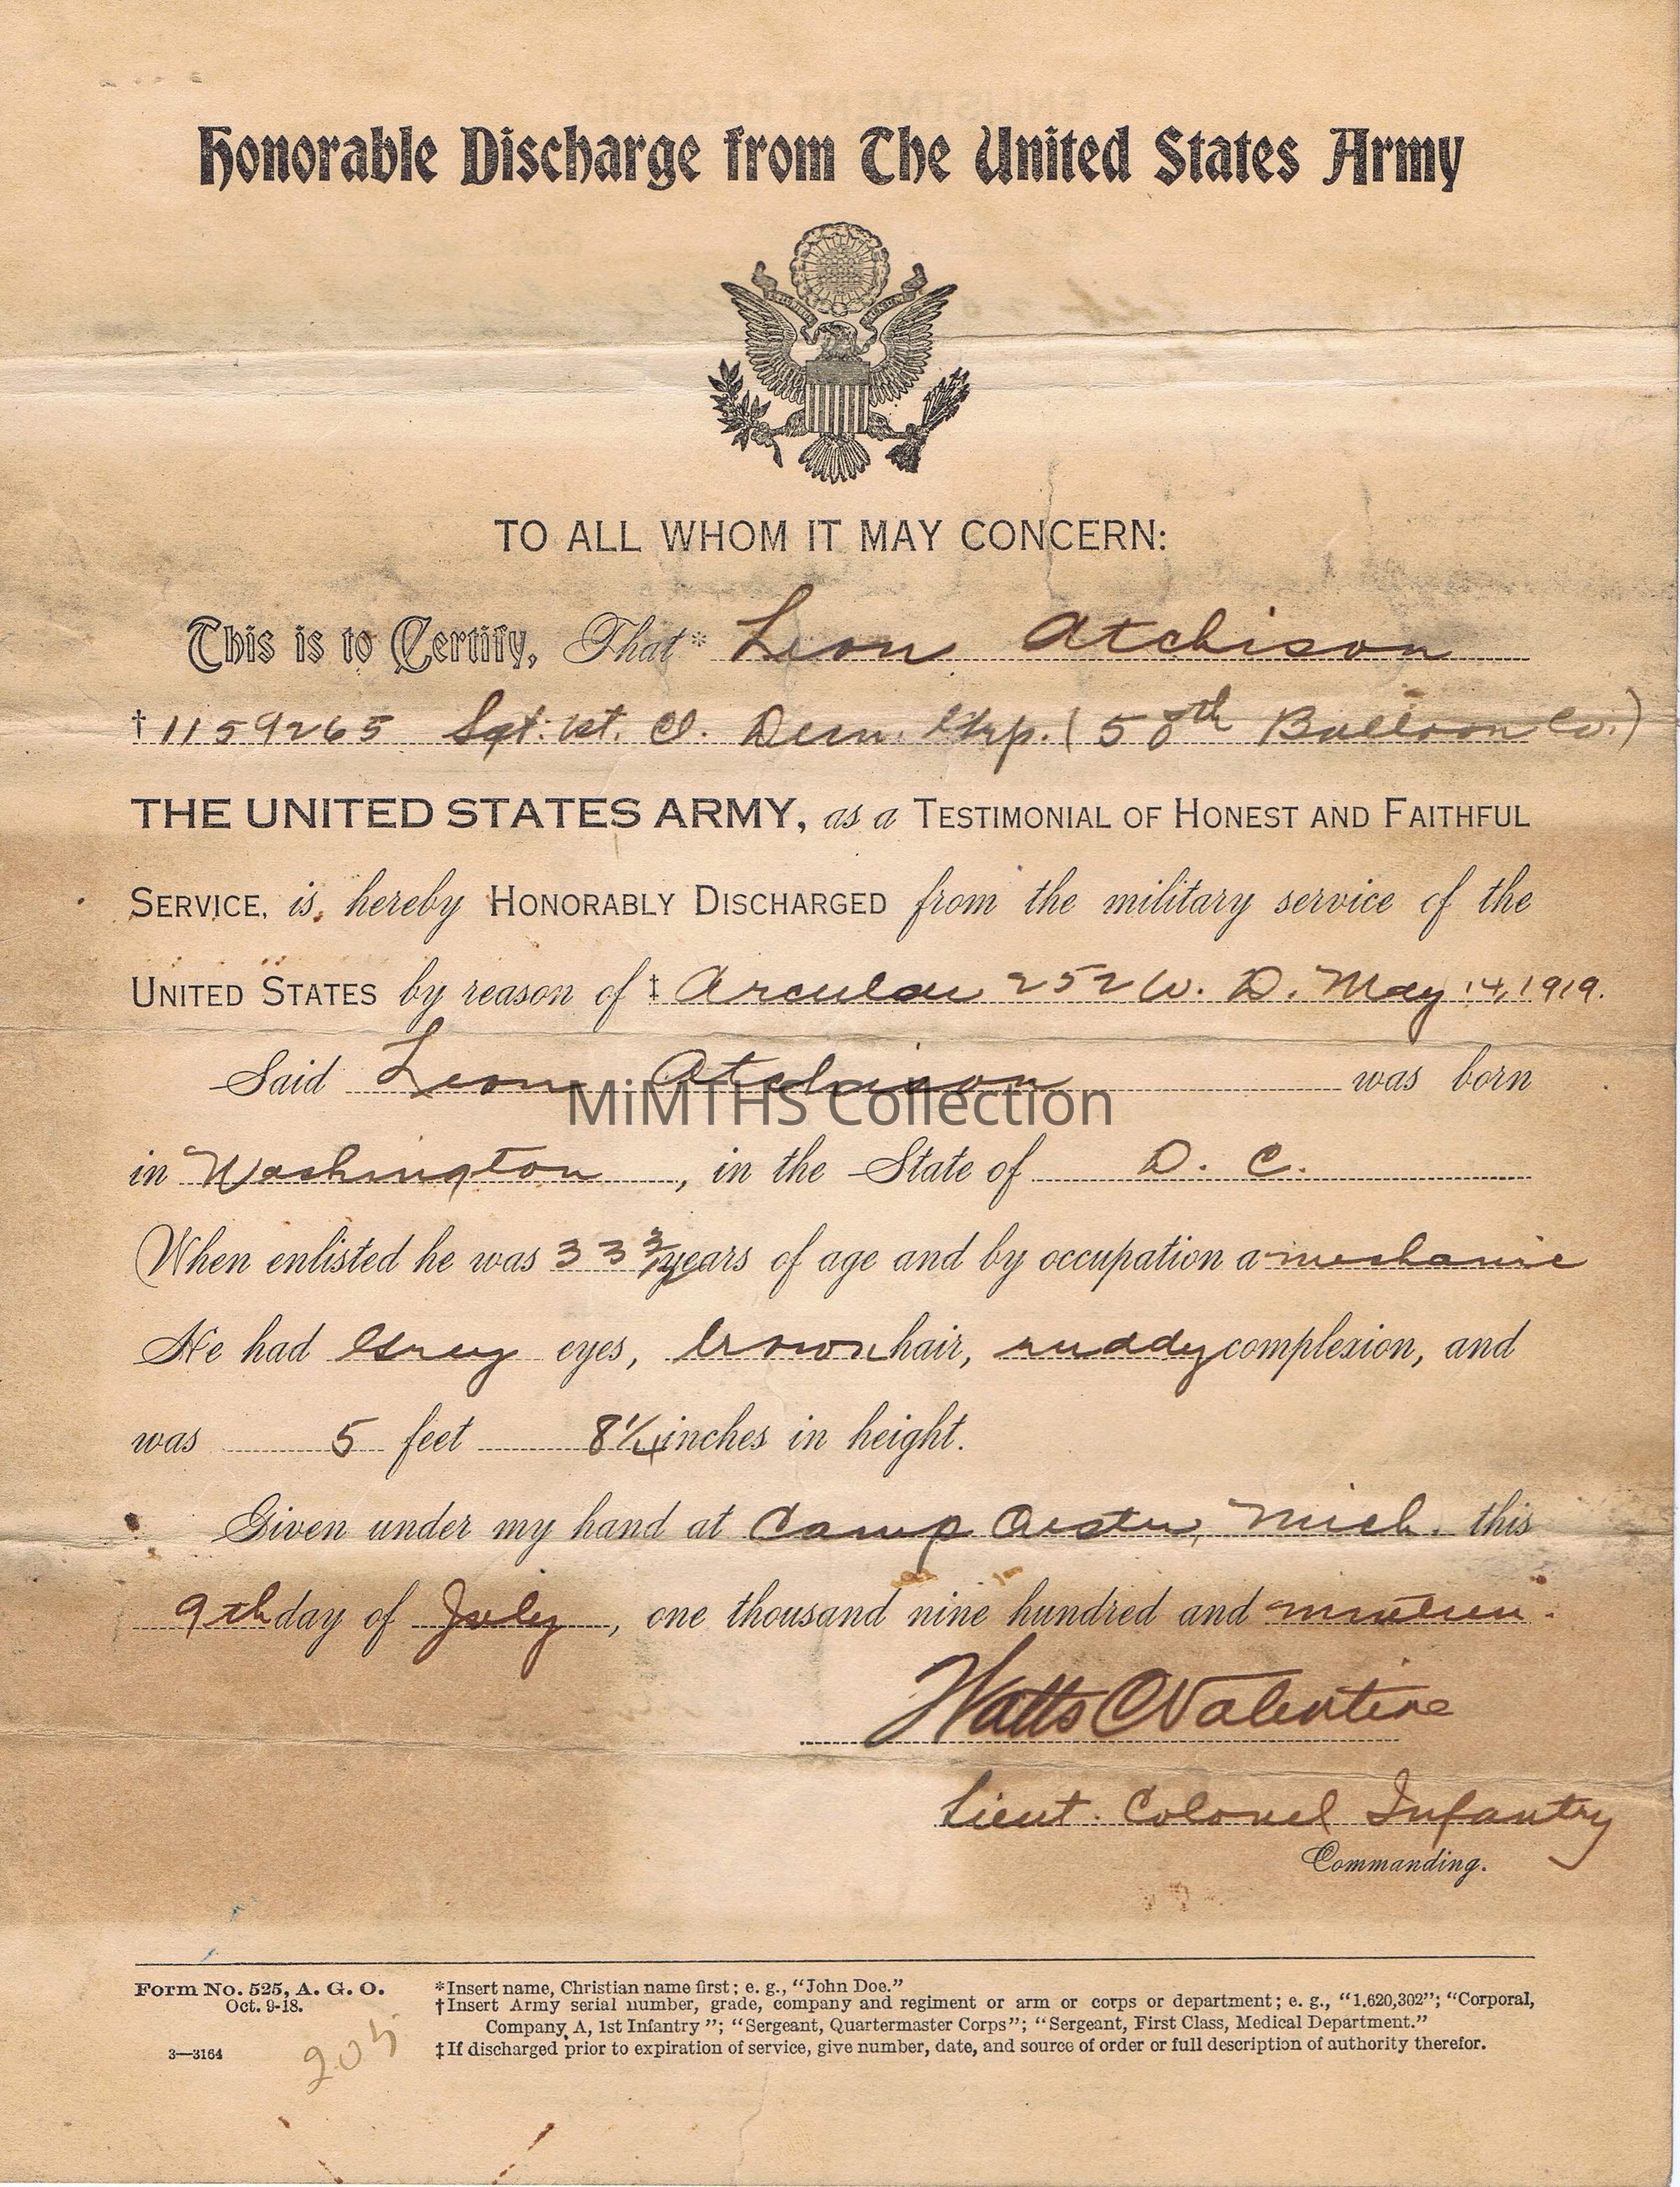 Honorable Discharge from The United States Army
TO ALL WHOM IT MAY CONCERN:
This is to Certify, That* Leon Atchison
†1159265 Sgt. 1st. Cl. Dem. Grp. (50th Balloon Co.)
THE UNITED STATES ARMY, as a TESTIMONIAL OF HONEST AND FAITHFUL
SERVICE, is hereby HONORABLY DISCHARGED from the military service of the
UNITED STATES by reason of ‡ Circular 252 W. D. May 14, 1919.
Said Leon Atchison was born
MiMTHS Collection
in Washington, in the State of D. C.
When enlisted he was 33 3/4 years of age and by occupation a mechanic
He had Grey eyes, brown hair, ruddy complexion, and
was 5 feet 8 1/4 inches in height.
Given under my hand at Camp Custer, Mich. this
9th day of July, one thousand nine hundred and nineteen.
Watts C Valentine
Lieut. Colonel Infantry
Commanding.
Form No. 525, A. G. O.
Oct. 9-18.
3—3164
205
*Insert name, Christian name first; e. g., "John Doe."
†Insert Army serial number, grade, company and regiment or arm or corps or department; e. g., "1,620,302"; "Corporal,
Company A, 1st Infantry"; "Sergeant, Quartermaster Corps"; "Sergeant, First Class, Medical Department."
‡If discharged prior to expiration of service, give number, date, and source of order or full description of authority therefor.